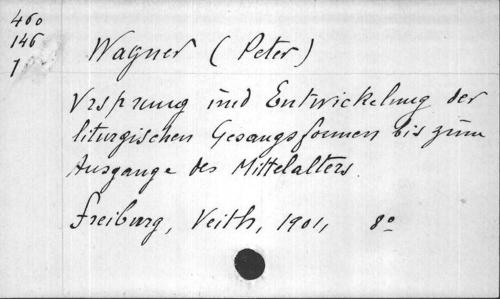 460
146
1
Wagner (Peter)
Ursprung und Entwickelung der
liturgischen Gesangsformen bis zum
Ausgange des Mittelalters.
Freiburg, Veith, 1901, 8°